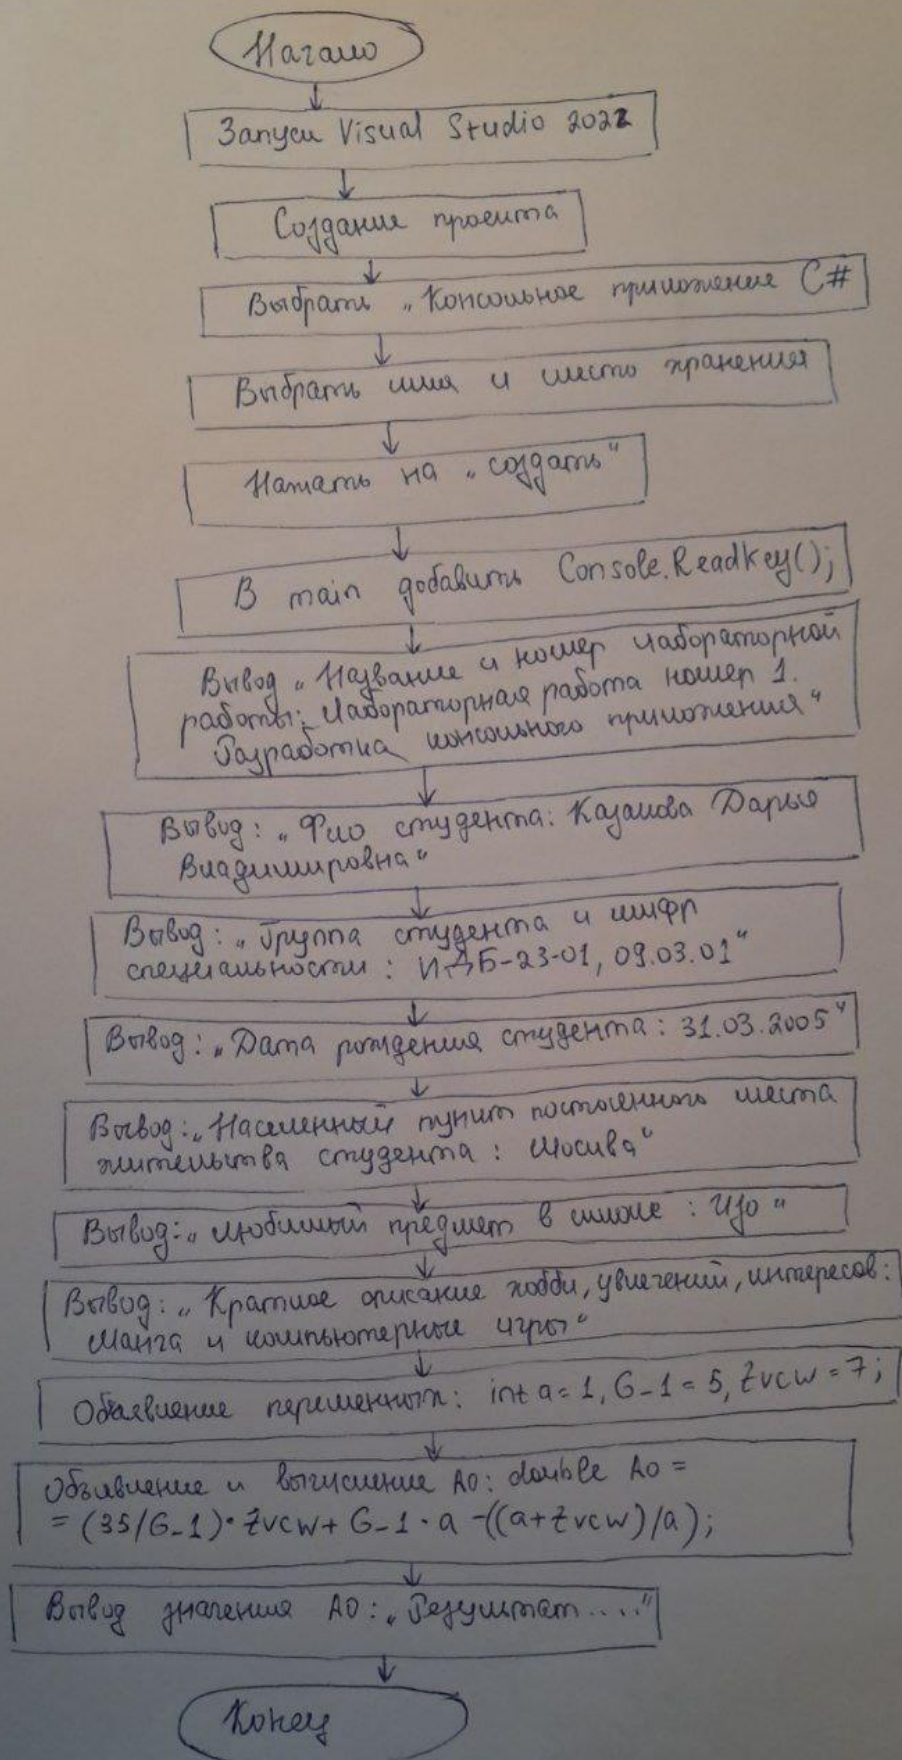 Начало
Запуск Visual Studio 2022
Создание проекта
Выбрать „Консольное приложение C#
Выбрать имя и место хранения
Нажать на „создать“
В main добавить Console.ReadKey();
Вывод „Название и номер лабораторной
работы: Лабораторная работа номер 1.
Разработка консольного приложения“
Вывод: „Фио студента: Казакова Дарья
Владимировна“
Вывод: „Группа студента и шифр
специальности: ИДБ-23-01, 09.03.01“
Вывод: „Дата рождения студента: 31.03.2005“
Вывод: „Населенный пункт постоянного места
жительства студента: Москва“
Вывод: „Любимый предмет в школе: Изо“
Вывод: „Краткое описание хобби, увлечений, интересов:
Манга и компьютерные игры“
Объявление переменных: int a = 1, G_1 = 5, Zvcw = 7;
Объявление и вычисление A0: double A0 =
= (35/G_1)·Zvcw + G_1·a - ((a+Zvcw)/a);
Вывод значения A0: „Результат....“
Конец